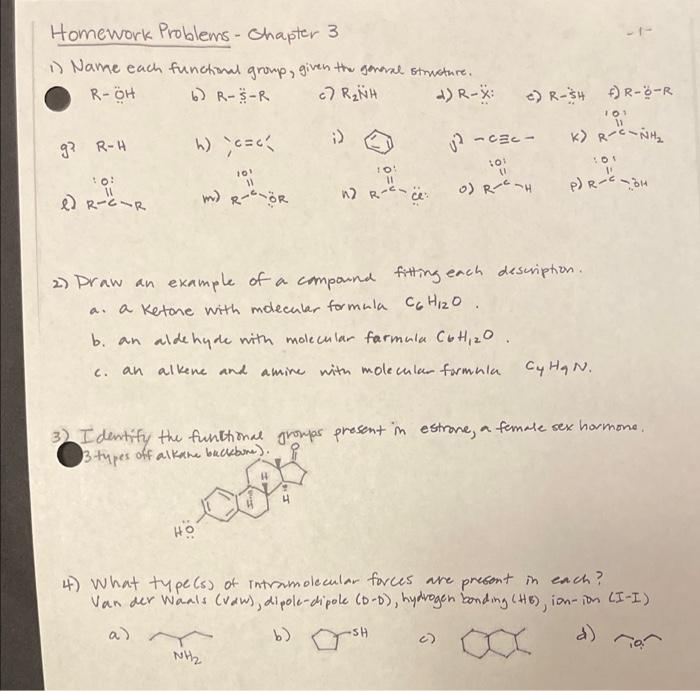 Homework Problems - Chapter 3 -1-
1) Name each functional group, given the general structure.
R-ÖH b) R-S̈-R c) R₂N̈H d) R-Ẍ: e) R-S̈H f) R-Ö-R
g) R-H h) C=C i) j) -C≡C- k) R-C(=O)-N̈H₂
l) R-C(=O)-R m) R-C(=O)-ÖR n) R-C(=O)-C̈l: o) R-C(=O)-H p) R-C(=O)-ÖH
2) Draw an example of a compound fitting each description.
a. a ketone with molecular formula C₆H₁₂O.
b. an aldehyde with molecular formula C₆H₁₂O.
c. an alkene and amine with molecular formula C₄H₉N.
3) Identify the functional groups present in estrone, a female sex hormone.
3-types off alkane backbone).
O
H H H H
HÖ
4) What type(s) of intramolecular forces are present in each?
Van der Waals (VdW), dipole-dipole (D-D), hydrogen bonding (HB), ion-ion (I-I)
a) b) SH c) d) :O:
NH₂